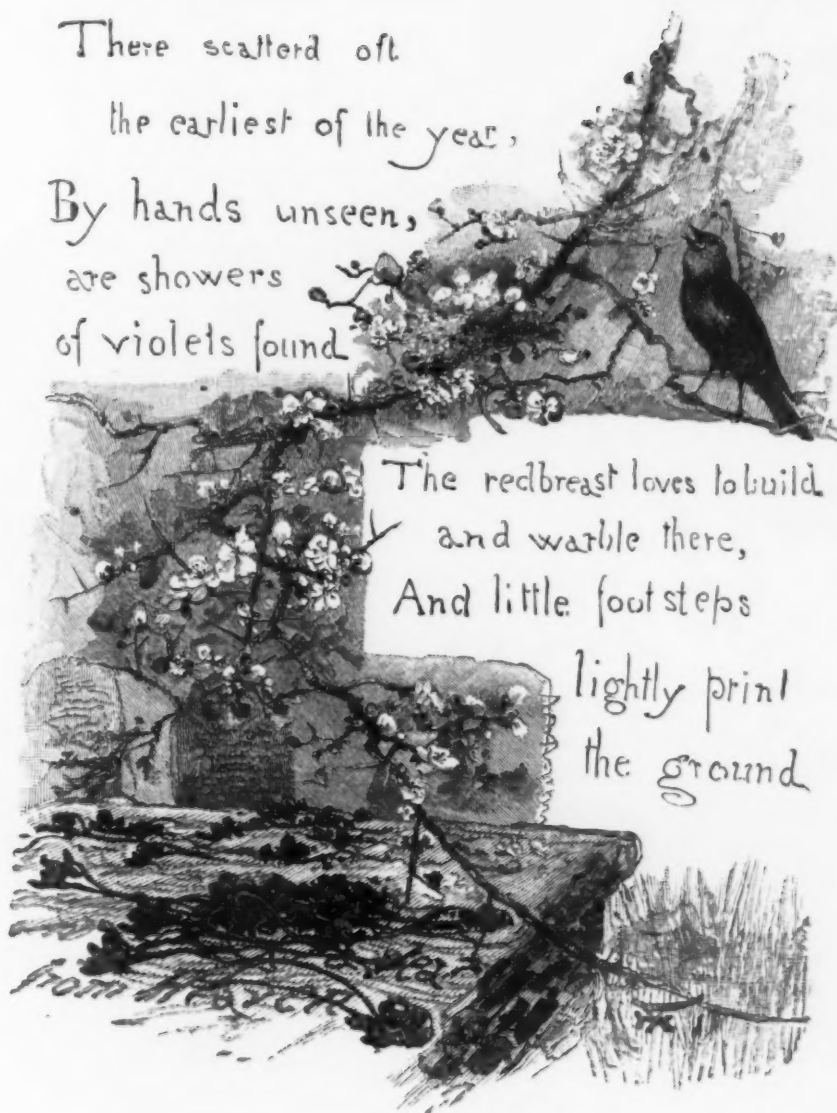 There scatterd oft
the earliest of the year,
By hands unseen,
are showers
of violets found
The redbreast loves to build
and warble there,
And little footsteps
lightly print
the ground
from Heaven